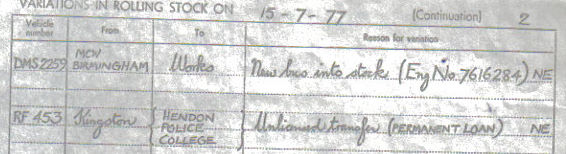 VARIATIONS IN ROLLING STOCK ON 15-7-77 (Continuation) 2
Vehicle number From To Reason for variation
DMS2259 MCW BIRMINGHAM Works New bus into stock (Eng No. 7616284) NE
RF 453 Kingston { HENDON POLICE COLLEGE { Unlicensed transfer (PERMANENT LOAN) NE